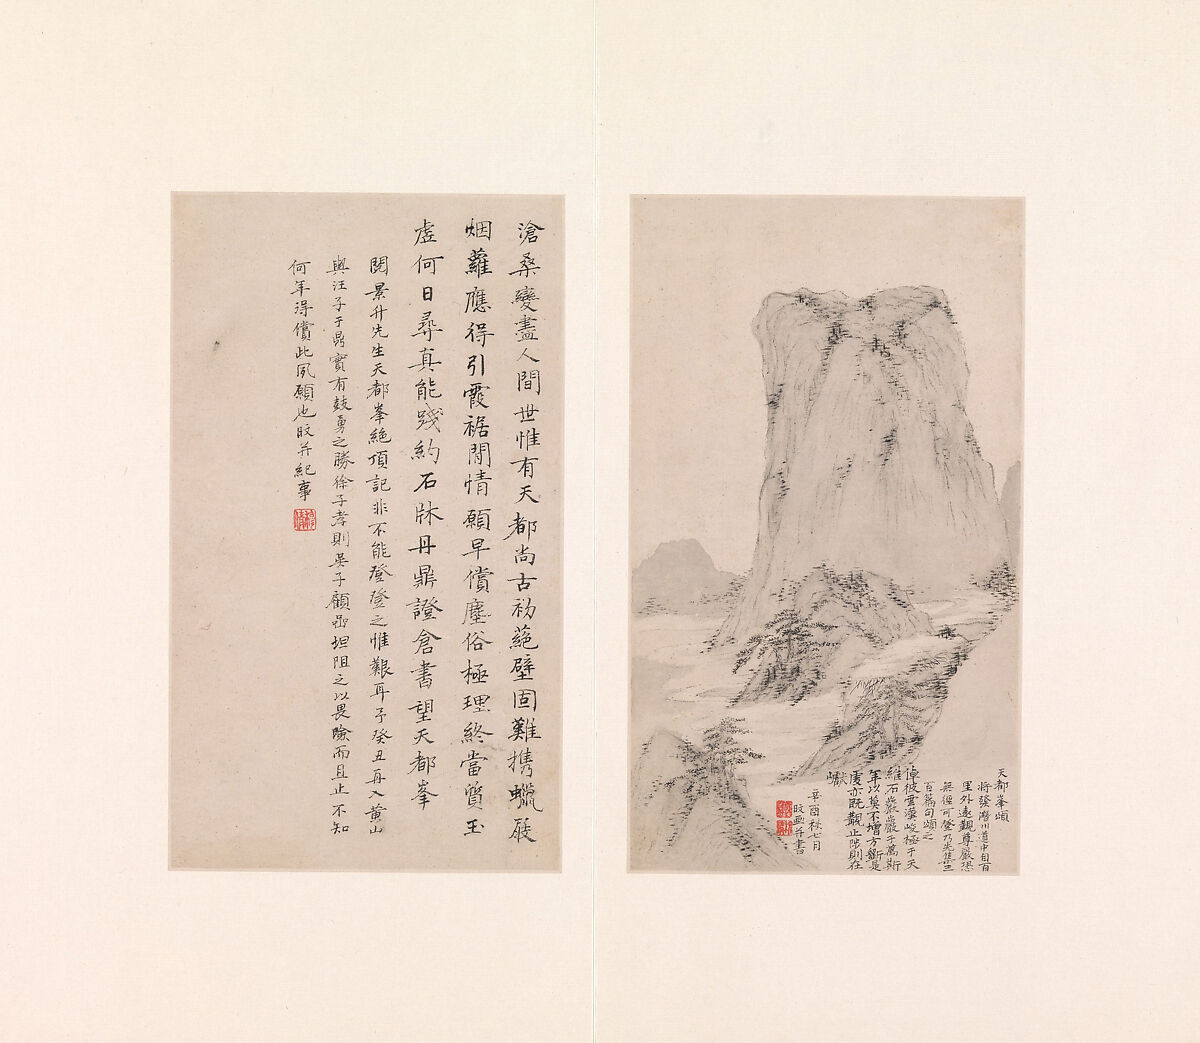 天都峯頌
將發潛川道中自百
里外遠觀尊嚴恐
無徑可登乃先集三
百篇句頌之
倬彼雲漢峻極于天
維石巖巖于萬斯
年以莫不增方斲是
虔亦既覯止陟則在
巘
辛酉秋七月
旼画并書
滄桑變盡人間世惟有天都尚古初壁固難携蠟屐
烟蘿應得引霞裾閒情願早償塵俗極理終當質玉
虛何日尋真能踐約石牀丹鼎證倉書望天都峯
閱景升先生天都峯絶頂記非不能登登之惟艱耳予癸丑再入黃山
與汪子于鼎實有鼓勇之勝徐子孝則吳子顧坦阻之以畏險而且止不知
何年得償此夙願也旼并紀事